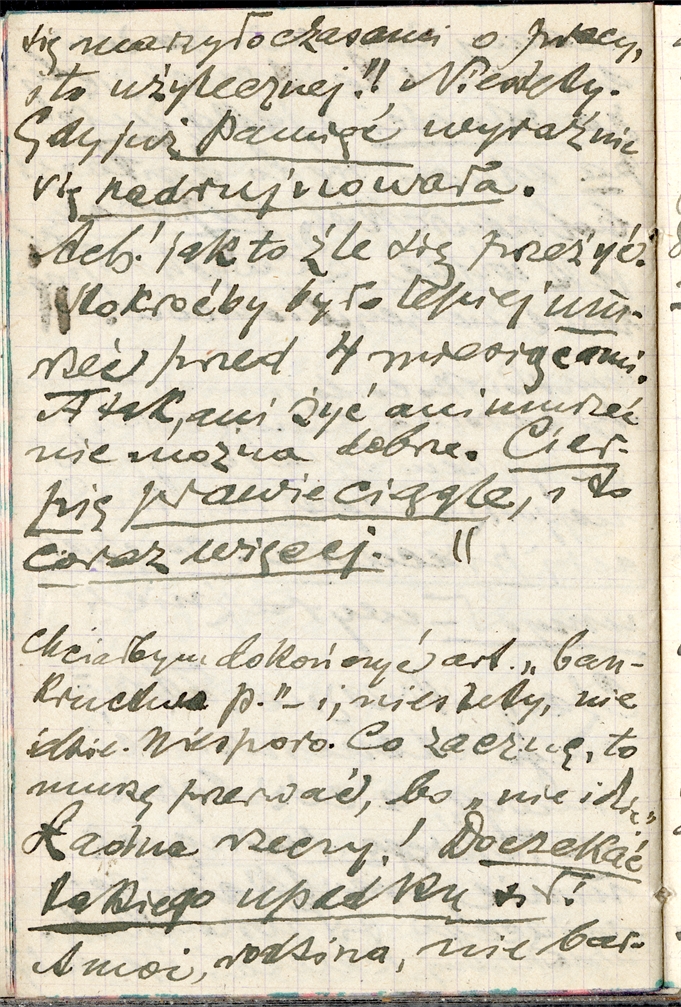 się marzyło czasami o pracy,
i to użytecznej!! Niestety.
Gdy już pamięć wyraźnie
się nadrujnowała.
Ach! jak to źle się przeżyć.
Stokroćby było lepiej um-
rzeć przed 4 miesiącami.
A tak, ani żyć ani umrzeć
nie można dobrze. Cier-
pię prawie ciągle, i to
coraz więcej. "
Chciałbym dokończyć art. „ban-
kructwa p." – i, niestety, nie
idzie. Niesporo. Co zacznę, to
muszę przerwać, bo „nie idzie"
Ładna rzeczy! Doczekać
takiego upadku
A moi, rodzina, nie bar-